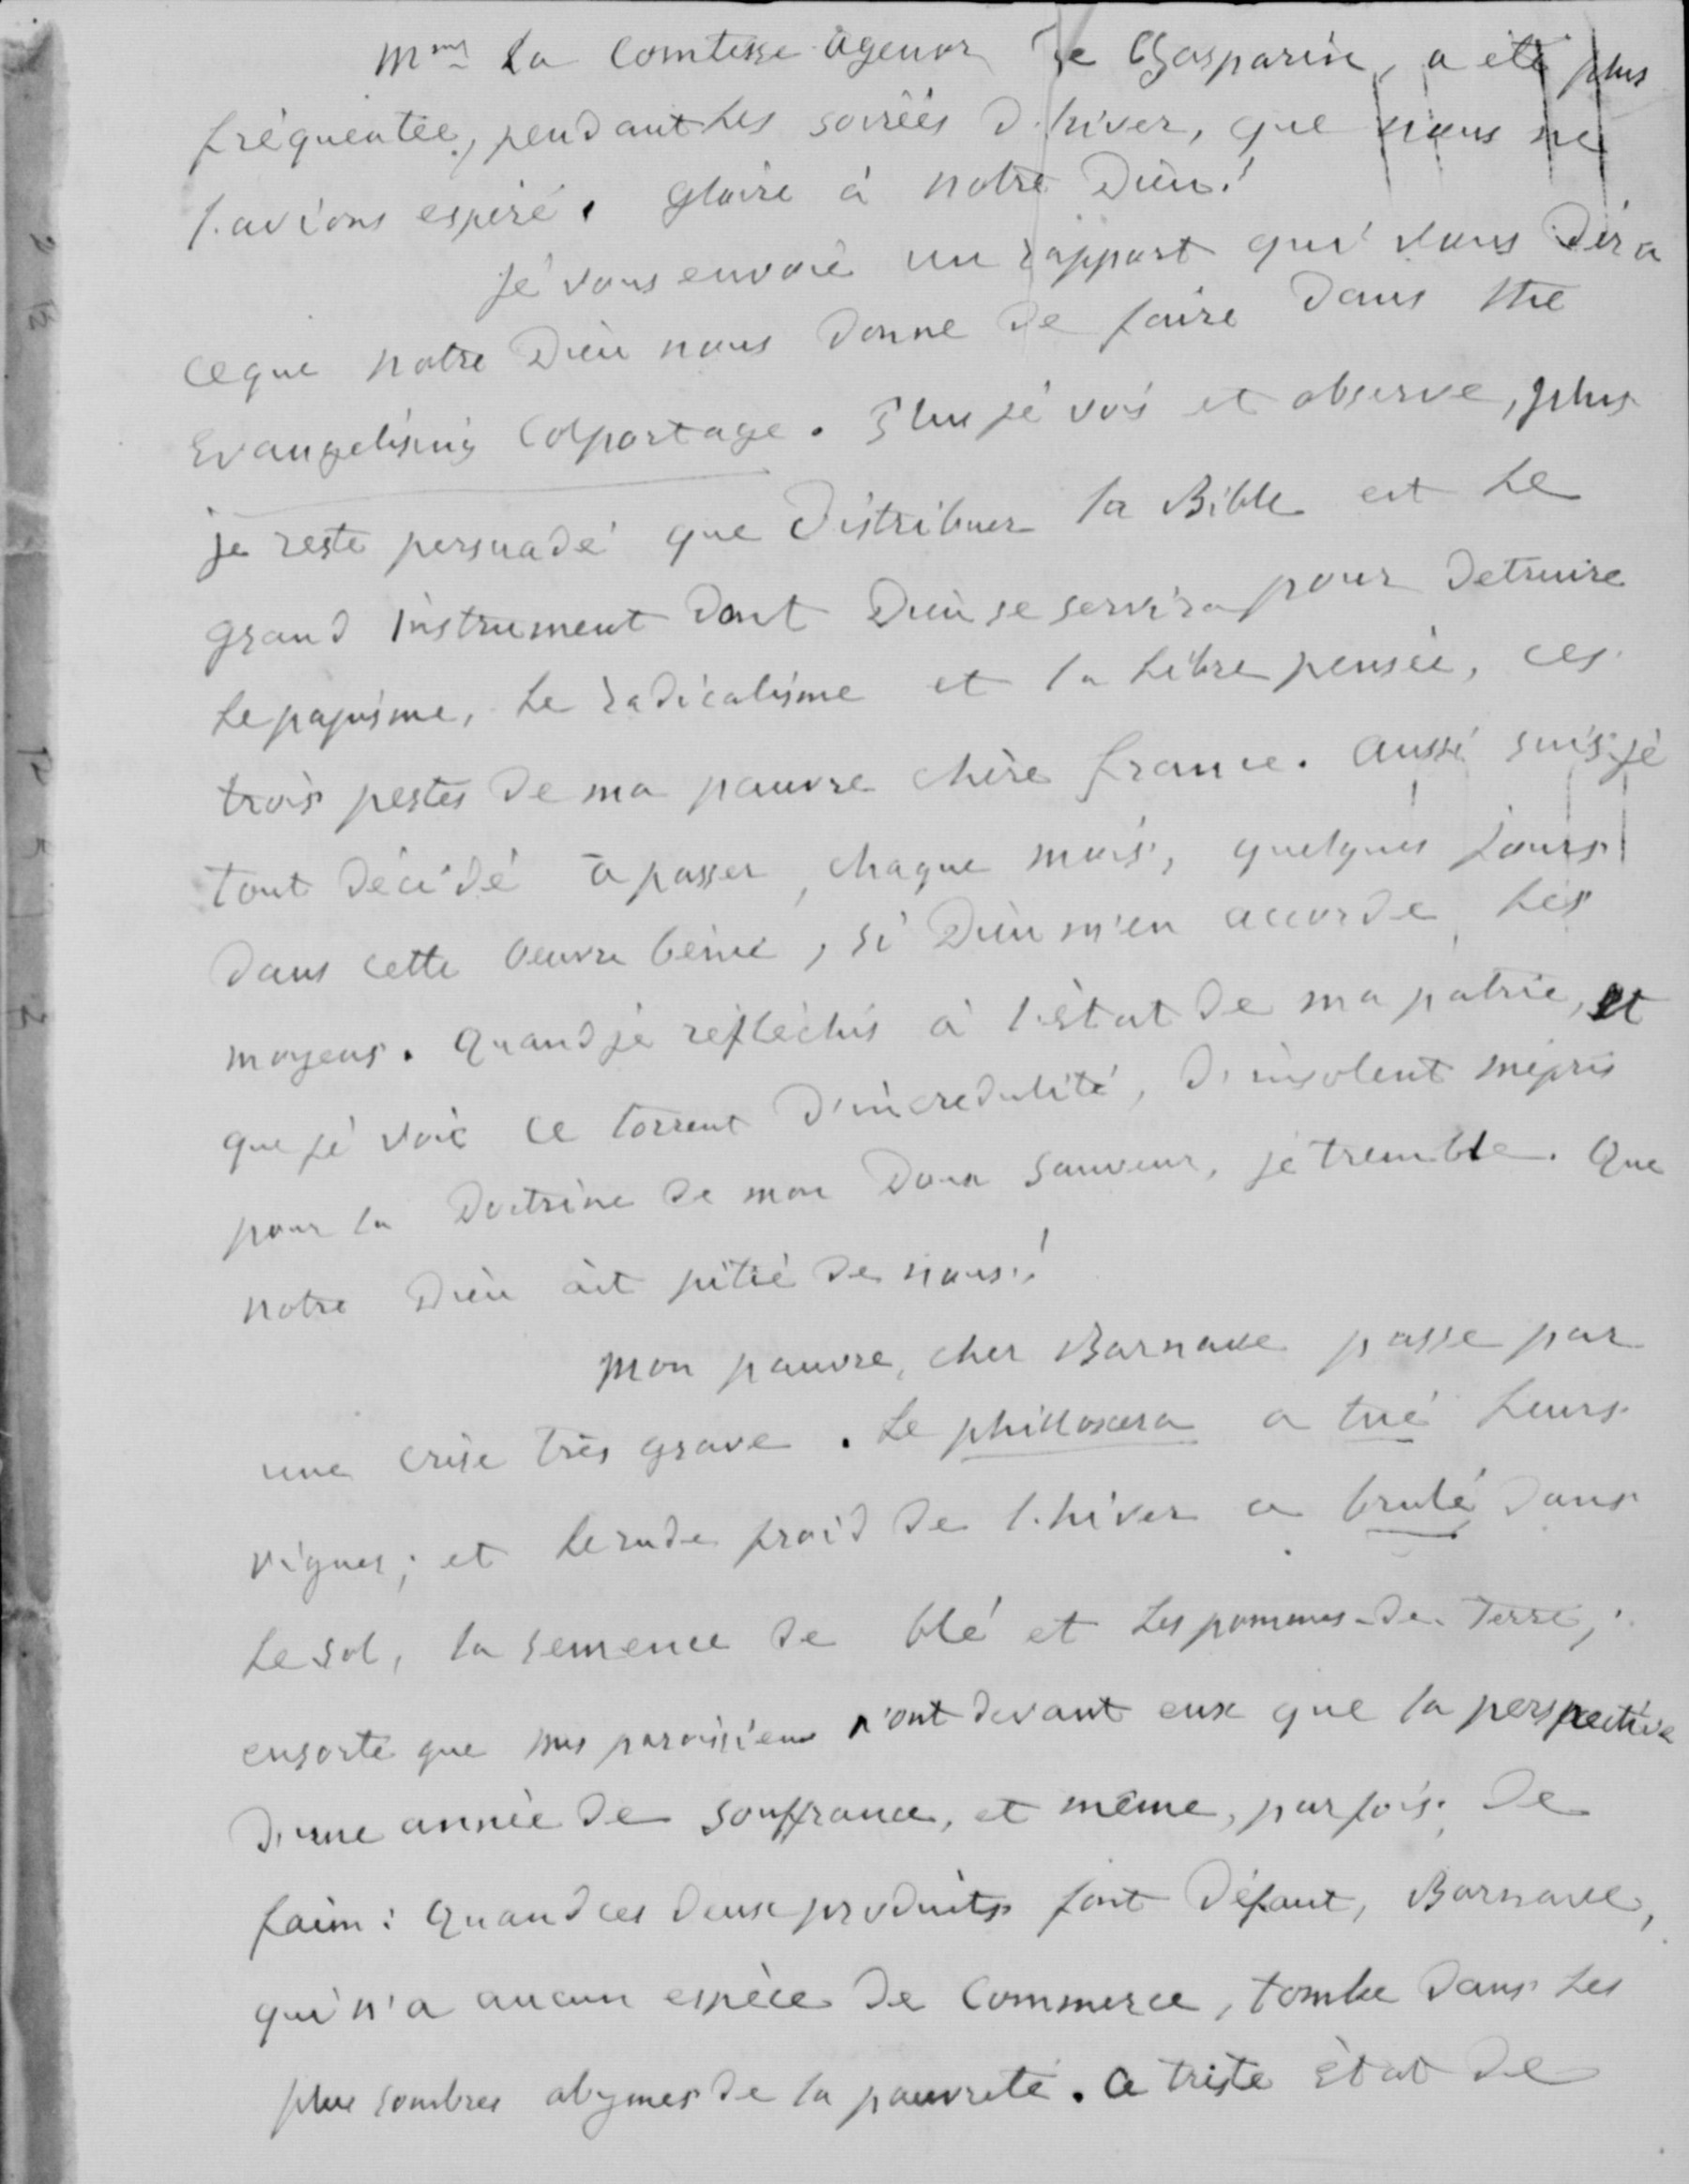 Mme La Comtesse Agenor De Gasparin, a été plus
fréquentée, pendant Les soirées d'hiver, que nous ne
l'avions espéré. Gloire à notre Dieu!
Je vous envoie un rapport qui vous Dira
ceque notre Dieu nous Donne De faire Dans the
Evangelising Colportage. Plus je vois et observe, plus
je reste persuadé que Distribuer la Bible est Le
grand instrument Dont Dieu se servira pour Detruire
Le papisme, Le radicalisme et la Libre pensée, ces
trois pestes De ma pauvre chère france. Aussi suis-je
tout Décidé à passer, chaque mois, quelques jours
Dans cette oeuvre bénie, si Dieu m'en accorde Les
moyens. Quand je réfléchis à l'état De ma patrie, et
que je vois ce torrent D'incredulité, D'insolent mépris
pour la Doctrine De mon Doux Sauveur, je tremble. Que
notre Dieu ait pitié De nous!
Mon pauvre, cher Barnave passe par
une crise très grave. Le philloxera a tué Leurs
vignes; et Le rude froid De l'hiver a brulé Dans
Le sol, la semence De blé et Les pommes-De-Terre;
ensorte que mes paroissiens n'ont Devant eux que la perspective
D'une année De souffrance, et même, parfois, De
faim: Quand ces Deux produits font Défaut, Barnave,
qui n'a aucun espèce De Commerce, tombe Dans Les
plus sombres abymes De la pauvreté. Ce triste Etat De